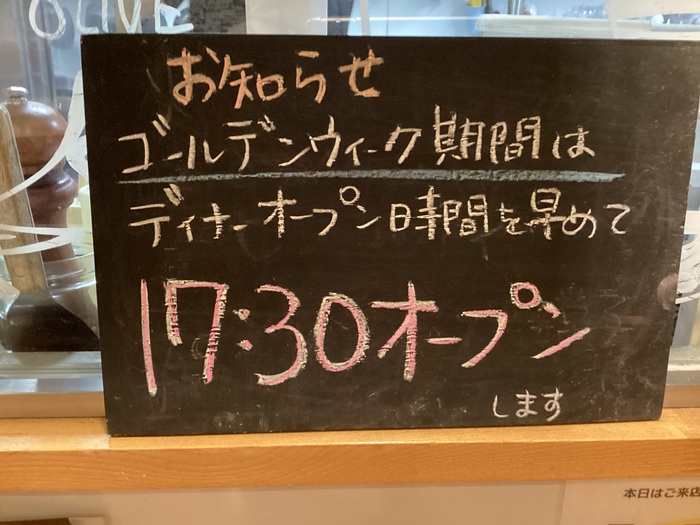 OLIVE
お知らせ
ゴールデンウィーク期間は
ディナーオープン時間を早めて
17:30オープン
します
本日はご来店